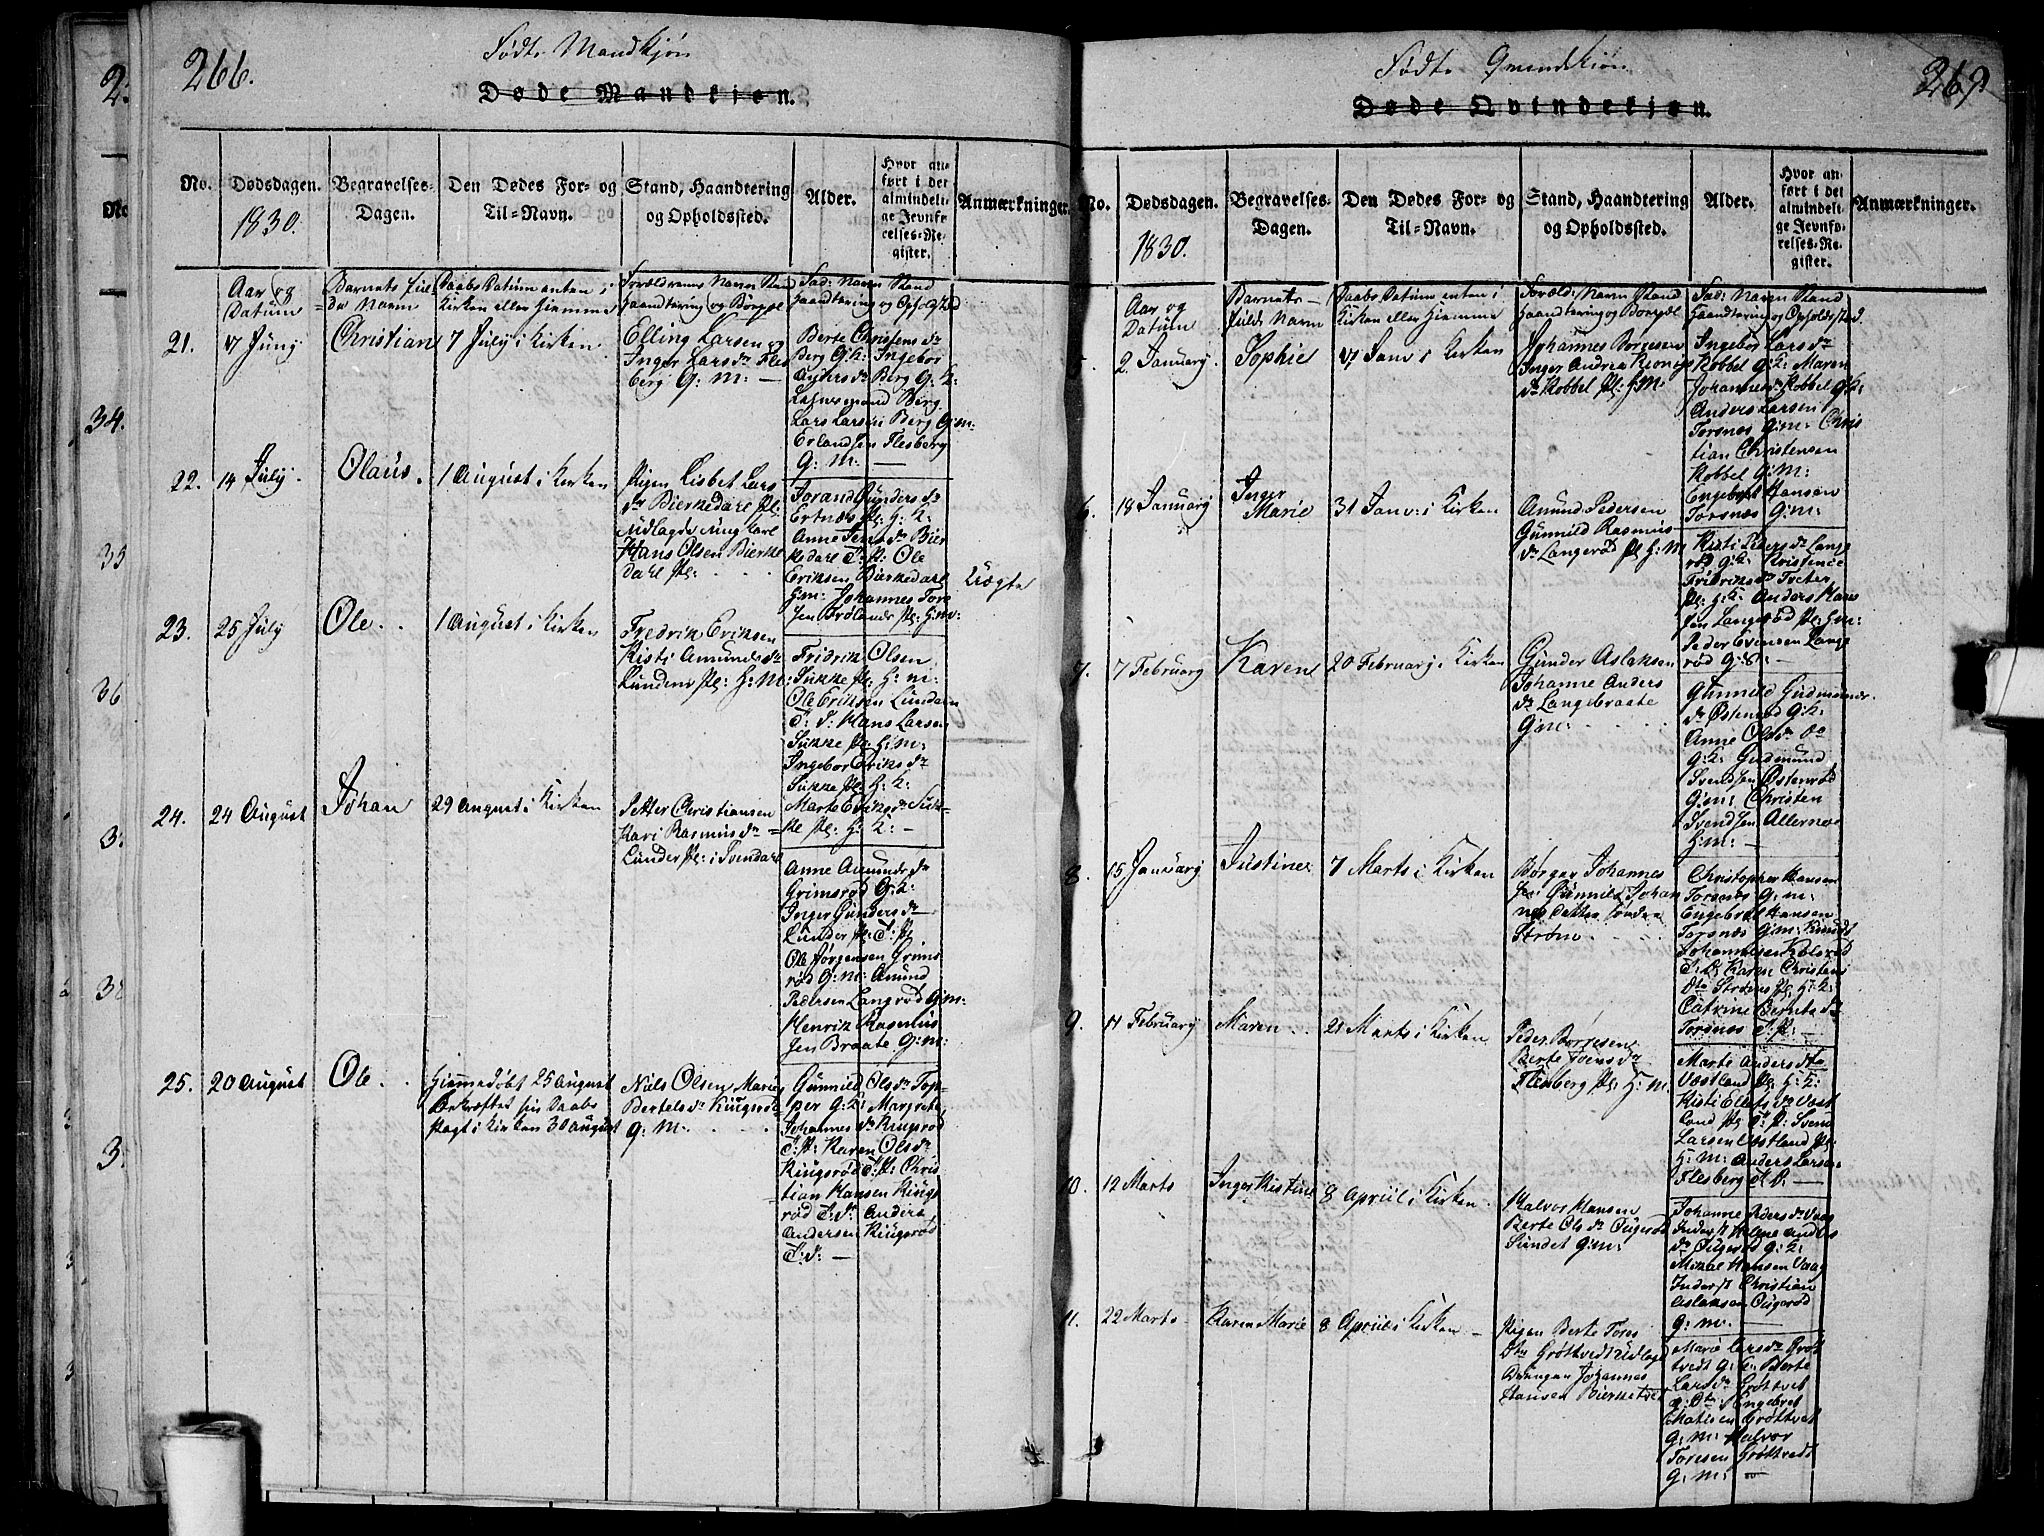 266.
Födte Mandkjön
Døde Mandkjøn.
No.
Dødsdagen.
1830.
Begravelses-
Dagen.
Den Dødes For- og
Til-Navn.
Stand, Haandtering
og Opholdssted.
Alder.
Hvor an-
ført i det
almindeli-
ge Jevnfø-
relses-Re-
gister.
Anmærkninger.
Aar og
Datum
Barnets ful-
de Navn
Daabs Datum enten i
Kirken eller Hiemme
Forældrenes Navn Stand
Haandtering og Bopæl
Fad: Navn Stand
Haandtering og Opholdsted
21.
17 Juny
Christian
7 July i Kirken
Elling Larsen og
Inger Lars dr Fles
berg G: M: —
Berte Christens dr
Berg G: K: Ingebor
Anders dr Berg G: K:
Berg
Lars Larsen Berg G: m:
Erlandsen Flesberg
G: M: —
22.
14 July
Olaus.
1 August i Kirken
Pigen Lisbet Lars
dr Bierkedarl pl:
Udlagde ung karl
Hans Olsen Bierke
Darl pl:
Torand Gunders dr
Ertnæs pl: H: K:
Anne Jens dr Bier
kedarl T: P: Ole
Eriksen Bierkedarl
H: m: Johannes Tore
sen Trölands pl: H: m:
Uægte
23.
25 July
Ole
1 August i Kirken
Fredrik Eriksen
Kisti Amunds dr
Lunden pl: H: M:
Fridrik Olsen
Sukke pl: H: m:
Ole Eriksen Lunden
T: d: Hans Larsen
Sukke pl: H: m:
Ingebor Eriks dr
Sukke pl: H: K:
Marte Eriks dr Suk-
ke pl: H: K: —
24.
24 August
Johan
29 August i Kirken
Petter Christiansen
Kari Rasmus dr
Lunder pl: i Svendarl
Anne Amunds dr
Grimsröd G: K:
Inger Gunders dr
Lunder pl: T: P:
Ole Jörgensen Grims
röd G: m: Amund
Pedersen Langröd G: m:
Henrik Rasmus
sen Braate G: m:
25.
20 August
Ole
Hiemmedöbt 25 August
Bekræftet sin Daabs
pagt i Kirken 30 August
Niels Olsen Marie
Bertels dr Kingsröd
G: M:
Gunnild Ols dr Top-
per G: K: Margrete
Johannes dr Kingsröd
T: P: Karen Ols dr
Kingsröd T: P: Chris
tian Hansen Kings
röd T: d: Anders
Andersen Kingsröd
T: d: —
269
Födte Qvindekiön
Døde Qvindekjøn.
No.
Dødsdagen.
1830.
Begravelses-
Dagen.
Den Dødes For- og
Til-Navn.
Stand, Haandtering
og Opholdssted.
Alder.
Hvor an-
ført i det
almindeli-
ge Jevnfø-
relses-Re-
gister.
Anmærkninger.
Aar og
Datum
Barnets
fulde Navn
Daabs Datum enten i
Kirken eller Hiemme
Foræld: Navn Stand
Haandtering og Bopæl
Fad: Navn Stand
Haandtering og Opholdsted.
2 Januarj
Sophie
17 Janv i Kirken
Johannes Börresen
Inger Andrea
dr Kobbel pl: H: M:
Ingebor Lars dr
Kobbel G: K: Maren
Johannes dr Kobbel G: K:
Anders Larsen
Torsnæs G: m: Chris
tian Christensen
Kobbel G: M:
Engebret Hansen
Torsnæs G: m:
6.
18 Januarj
Inger
Marie
31 Janv: i Kirken
Amund Pedersen
Gunnild Rasmus
dr Langeröd pl: H: M:
Kisti Peders dr Lange
röd G: K: Kristence
Fridriks dr Treter
pl: H: K: Anders Hans
sen Langeröd pl: H: m:
Peder Evensen Lange
röd G: S: —
7.
7 Februarj
Karen
20 Februarj i Kirken
Gunder Aslaksen
Johanne Anders
dr Langebraate
G: m:
Gunnild Gudmunds
dr Östenröd G: K:
Anne Ols dr Do
G: K: Gudmund
Svendsen Östenröd
G: m: Christen
Svendsen Allernæs
H: m: —
8.
15 Januarj
Justine
7 Marts i Kirken
Börger Johannes
sen Gunnild Johan
nes Datter Söndre
Ström
Christopher Hansen
Torsnæs G: m:
Engebret Hansen
Torsnæs G: m: Knudt
Johannesen Kolsröd
T: D: Karen Christens
Dtr Ströms pl: H: K:
Catrine Bernts dr
Torsnæs T: P: —
9.
11 Februarj
Maren
21 Marts i Kirken
Peder Börresen
Berte Joens dr
Flesberg pl: H: M:
Marte Anders dtr
Væstland pl: H: K:
Kisti Elefs dr Væst
land pl T: P: Svend
Larsen Væstland pl:
H: M: Anders Larsen
Flesberg —
10.
12 Marts
Inger Kistine
8 Apriil i Kirken
Halvor Hansen
Berte Ols dr Ougeröd
Sundet G: m:
Johanne Peders dr Vaag
Inderst Helene Andres
dr Ougeröd G: K:
Mikal Hansen Vaag
Inderst Christian
Aslaksen Ougeröd
G: m. —
11.
22 Marts
Karen Marie
8 Apriil i Kirken —
Pigen Berte Tores
Dtr Gröttvedt Udlagd
Drengen Johannes
Hansen Bierketved
Marie Lars dr Gröt
vedt G: K: Berte
Lars dr Gröttvet
G: Dtr: Engebret
Matisen Gröttvet
G: M: Halvor
Toresen Gröttvedt
G: M: —
34.
35
36